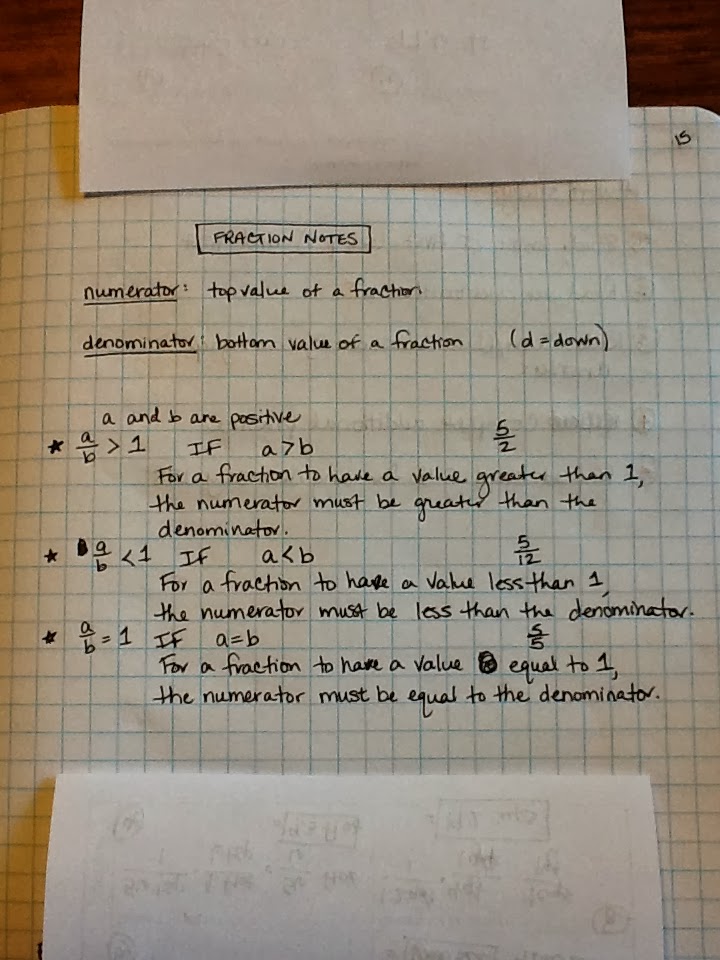 15
FRACTION NOTES
numerator: top value of a fraction
denominator: bottom value of a fraction (d = down)
a and b are positive
* a/b > 1 IF a > b 5/2
For a fraction to have a value greater than 1,
the numerator must be greater than the
denominator.
* a/b < 1 IF a < b 5/12
For a fraction to have a value less than 1,
the numerator must be less than the denominator.
* a/b = 1 IF a = b 5/5
For a fraction to have a value equal to 1,
the numerator must be equal to the denominator.